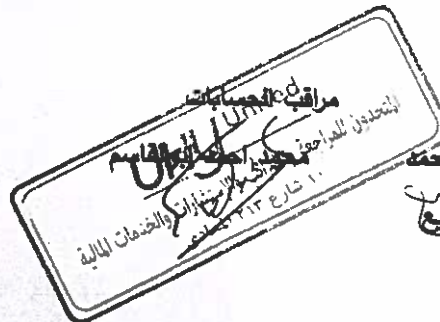 مراقب الحسابات
محمد احمد ابو القاسم
حمد
United
المتحدون للمراجعة والضرائب والاستشارات والخدمات المالية
١٠ شارع ٢١٣